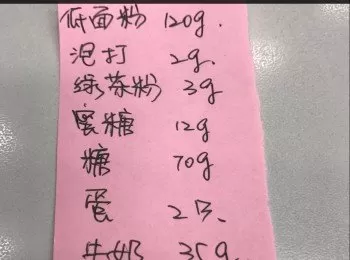 低面粉 120g.
泡打 2g.
绿茶粉 3g
蜜糖 12g
糖 70g
蛋
牛奶 35g